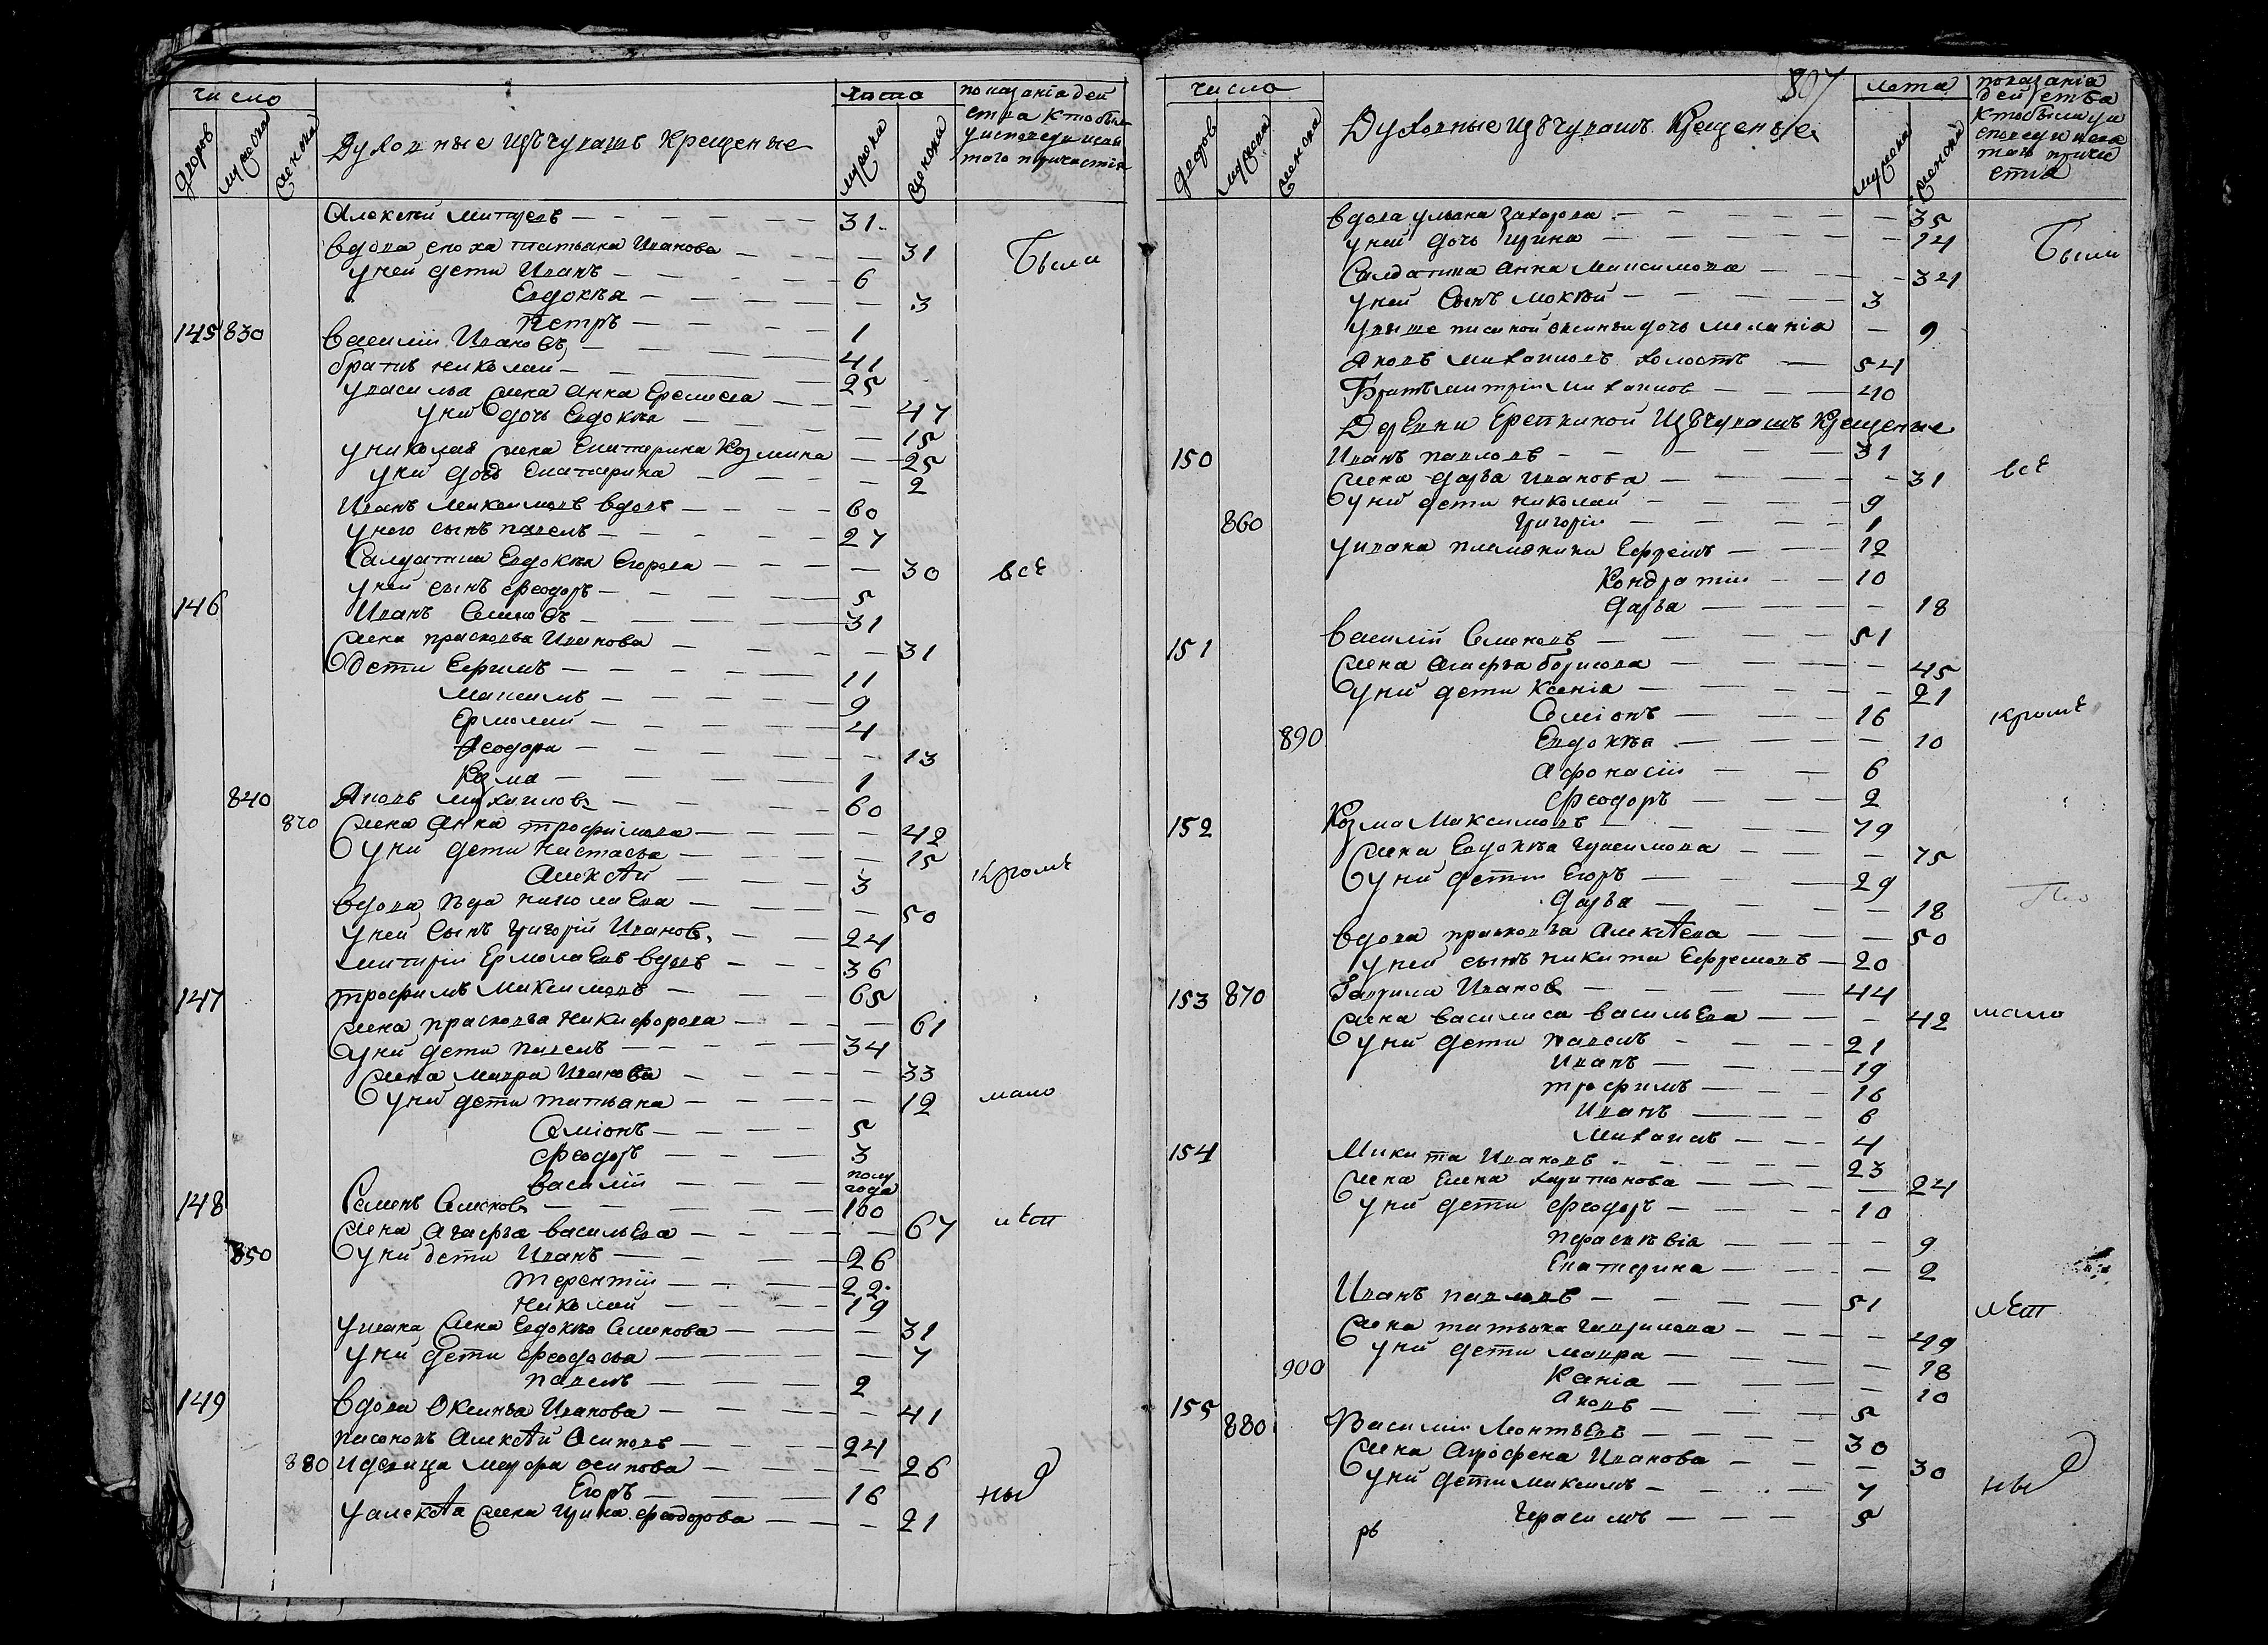 число
лѣта
показанїа дей
ства кто был
у исповеди и свя
того причастїя
дворов
мужеска
женска
Духовные изъ чуваш крещеные
мужска
женска
Алексѣй Митрев 31
Вдова сноха Татьяна Иванова 31
Были
у ней дети Иванъ 6
Евдокѣя 3
Петръ 1
145 830 Василїй Ивановъ 41
братъ Николай 25
у Василья жена Анна Еремеева 47
у них дочь Евдокѣя 15
у Николая жена Екатерина Козмина 25
у них дочь Екатерина 2
Иванъ Максимовъ вдовъ 60
у него сынъ Павелъ 27
Салдатка Евдокѣя Егорова 30
всѣ
у ней сынъ Феодоръ 5
146 Иванъ Семновъ 31
жена Прасковья Иванова 31
дети Ефимъ 11
Максимъ 9
Ермолай 4
Феодора 13
Козма 1
840 Яковъ Михаиловъ 60
870 жена Анна Трофимова 42
у них дети Настасья 15
Алексѣй 3
кромѣ
вдова Николаева 50
у ней сынъ Григорїй Иванов 24
Митирїй Ермолаевъ вдовъ 36
147 Трофимъ Максимовъ 65
жена Прасковья Никифорова 61
у них дети Павелъ 34
жена Мавра Иванова 33
у них дети Татьяна 12
мало
Семїонъ 5
Феодоръ 3
Василїй полу
года
148 Семенъ Семенов 100
жена Агафья Васильева 67
лѣт
850 у них дети Иванъ 26
Терентїй 22
Николай 19
у Ивана жена Евдокѣя Семенова 31
у них дети Феодосья 7
Павелъ 2
149 Вдова Оксинья Иванова 41
пасынокъ Алексѣй Осиповъ 24
880 и девица Осипова 26
Егоръ 16
ных
у Алексѣя жена Ирина Феодорова 21
807
число
лета
показанїа
действа
кто былъ у и
споведи и свя
таго приче
стїя
дворов
мужска
женска
Духовные изъ чувашъ крещеные
мужска
женска
вдова Ульана Захарова 35
у ней дочь Ирина 14
Были
Салдатка Анна Максимова 34
у ней сынъ Мокѣй 3
у выше писаной Оксиньи дочь Меланїа 9
Яковъ Михаиловъ холостъ 54
Братъ Митрїй Михаилов 40
Деревни Ереткиной изъ чувашъ крещеные
150 Иванъ Павловъ 31
всѣ
жена Дарья Иванова 31
у них дети Николай 9
860 Григорїй 1
у Ивана племяники Ефремъ 12
Кондратїй 10
Дарья 18
151 Василїй Семеновъ 51
жена Агафья Борисова 45
у них дети Ксенїа 21
Семїонъ 16
кромѣ
890 Евдокѣа 10
Афонасїй 6
Феодоръ 2
152 Козма Максимовъ 79
жена Евдокѣа Герасимова 75
у них дети Егоръ 29
Дарья 18
вдова Прасковья Алексѣева 50
у ней сынъ Никита Ефремовъ 20
153 870 Гаврила Иванов 44
жена Василиса Васильева 42
мало
у них дети Павелъ 21
Иванъ 19
Трофимъ 16
Иванъ 6
Михаилъ 4
154 Микита Ивановъ 23
жена Елена Харитонова 24
у них дети Феодоръ 10
Параскѣвїа 9
Екатерина 2
Иванъ Павловъ 51
лѣт
жена Татьяна Гаврилова 49
у них дети Мавра 18
900 Ксанїа 10
Яковъ 5
155 880 Василїй Леонтьевъ 30
жена Агрофена Иванова 30
у них дети Максимъ 7
ных
Герасимъ 5
рь